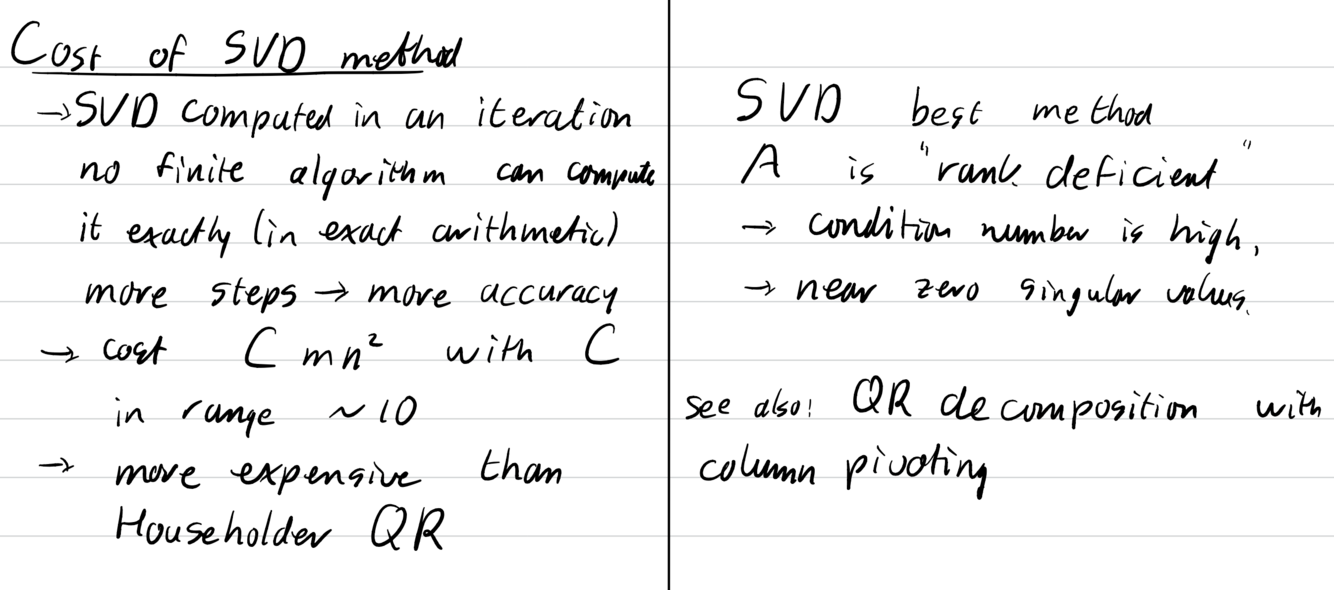 Cost of SVD method
→ SVD computed in an iteration
no finite algorithm can compute
it exactly (in exact arithmetic)
more steps → more accuracy
→ cost C mn² with C
in range ~10
→ more expensive than
Householder QR
SVD best method
A is "rank deficient"
→ condition number is high,
→ near zero singular values.
see also: QR decomposition with
column pivoting